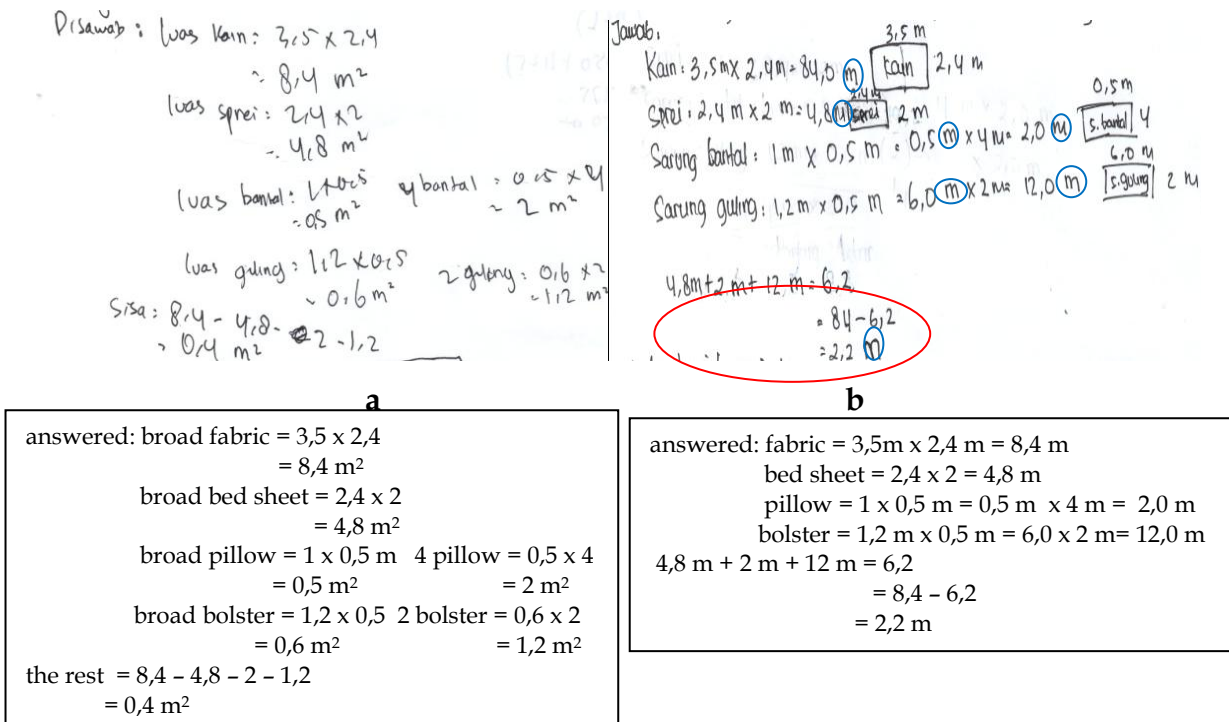 Disawab : luas kain : 3,5 x 2,4
= 8,4 m²
luas sprei : 2,4 x 2
= 4,8 m²
luas bantal : 1 x 0,5 4 bantal = 0,5 x 4
= 0,5 m² = 2 m²
luas guling : 1,2 x 0,5 2 guling : 0,6 x 2
= 0,6 m² = 1,2 m²
Sisa : 8,4 - 4,8 - 2 - 1,2
= 0,4 m²
Jawab :
3,5 m
Kain : 3,5 m x 2,4 m = 84,0 m kain 2,4 m
2,4 m
Sprei : 2,4 m x 2 m = 4,8 m sprei 2 m
0,5 m
Sarung bantal : 1 m x 0,5 m = 0,5 m x 4 m = 2,0 m s.bantal 4
6,0 m
Sarung guling : 1,2 m x 0,5 m = 6,0 m x 2 m = 12,0 m s.guling 2 m
4,8 m + 2 m + 12 m = 6,2
= 84 - 6,2
= 2,2 m
a
b
answered: broad fabric = 3,5 x 2,4
= 8,4 m²
broad bed sheet = 2,4 x 2
= 4,8 m²
broad pillow = 1 x 0,5 m 4 pillow = 0,5 x 4
= 0,5 m² = 2 m²
broad bolster = 1,2 x 0,5 2 bolster = 0,6 x 2
= 0,6 m² = 1,2 m²
the rest = 8,4 – 4,8 – 2 – 1,2
= 0,4 m²
answered: fabric = 3,5m x 2,4 m = 8,4 m
bed sheet = 2,4 x 2 = 4,8 m
pillow = 1 x 0,5 m = 0,5 m x 4 m = 2,0 m
bolster = 1,2 m x 0,5 m = 6,0 x 2 m= 12,0 m
4,8 m + 2 m + 12 m = 6,2
= 8,4 – 6,2
= 2,2 m